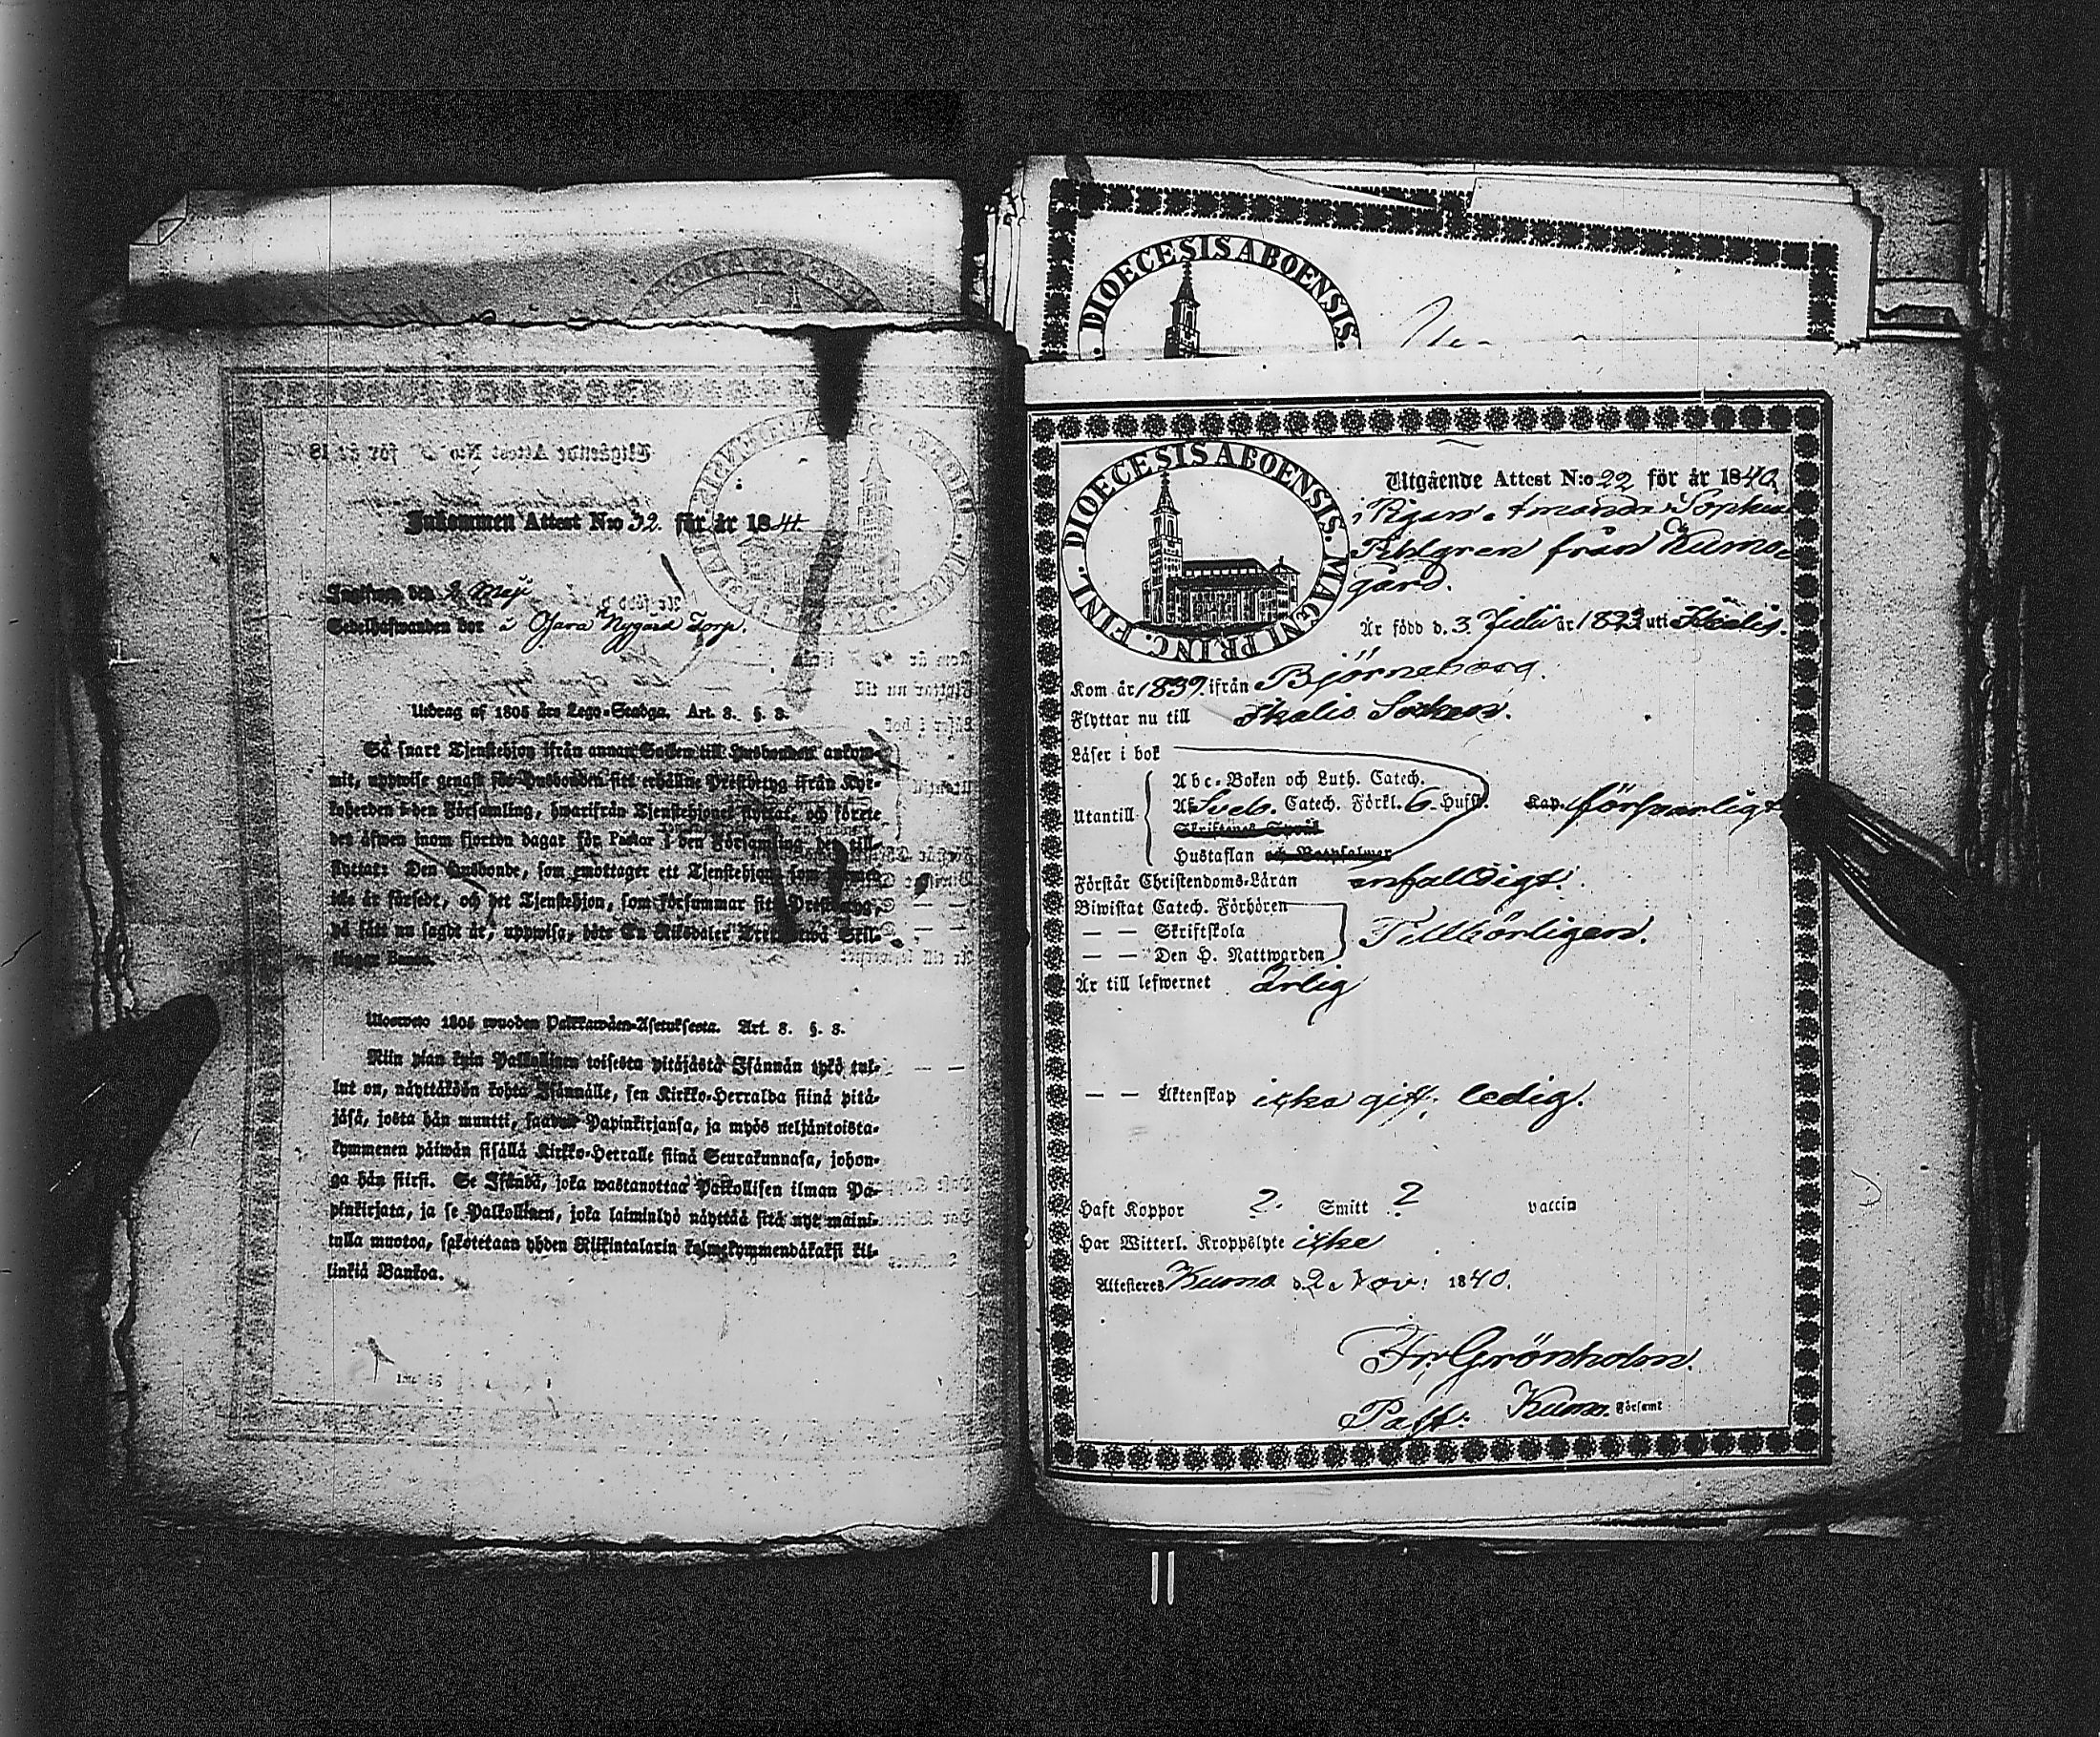 Inkommen Attest N:o 32. för år 1841
Inskrefs den 2 Maj
Sedelhafwanden bor å Ojara Nygård Torp.
Utdrag af 1805 års Lego-Stadga. Art. 3. §. 8.
Så snart Tjenstehjon ifrån annan Socken till Husbonden ankom-
mit, uppwise genast för Husbonden sitt erhållne Prestbetyg ifrån Kyr-
koherden i den Församling, hwarifrån Tjenstehjonet flyttat, och förete
det äfwen inom fjorton dagar för Pastor i den Församling, det till-
flyttat: Den Husbonde, som emottager ett Tjenstehjon, som
icke är försedt, och det Tjenstehjon, som försummar sitt Prestbetyg,
på sätt nu sagdt är, uppwisa, böte En Riksdaler Tretiotwå Skil-
lingar Banko.
Ulosweto 1805 wuoden Palkkawäen-Asetuksesta. Art. 8. §. 8.
Niin pian kuin Palkollinen toisesta pitäjästä Isännän tykö tul-
lut on, näyttäköön kohta Isännälle, sen Kirkko-Herralda siinä pitä-
jäsä, josta hän muutti, saadun Papinkirjansa, ja myös neljäntoista-
kymmenen päiwän sisällä Kirkko-Herralle siinä Seurakunnasa, johon-
ga hän siirsi. Se Isändä, joka wastanottaa Palkollisen ilman Pa-
pinkirjata, ja se Palkollinen, joka laiminlyö näyttää sitä nyt maini-
tulla muotoa, sakotetaan yhden Riikintalarin kolmekymmendäkaksi kil-
linkiä Bankoa.
DIOECESIS ABOENSIS.
DIOECESIS ABOENSIS. MAGNI PRINC. FINL.
Utgående Attest N:o 22 för år 1840
Pigan Amanda Sophia
Fihlgren från Kumo
gård.
Är född d. 3 Julii år 1823 uti Ikalis.
Kom år 1839 ifrån Björneborg.
Flyttar nu till Ikalis Socken.
Läser i bok
Utantill
Abc-Boken och Luth. Catech.
Sveb. Catech. Förkl. 6 Hufst. Kap. försvarligt
Skriftenes Språk
Hustaflan och Botpsalmer
Förstår Christendoms-Läran enfalldigt.
Biwistat Catech. Förhören
— — Skriftskola Tillbörligen.
— — Den H. Nattwarden
Är till lefwernet ärlig
— — Äktenskap icke gift, ledig.
Haft Koppor ? Smitt ? vaccin
Har Witterl. Kroppslyte icke
Attesteres Kumo d. 2 Nov: 1840.
Fr. Grönholm.
Past: Kumo Församl